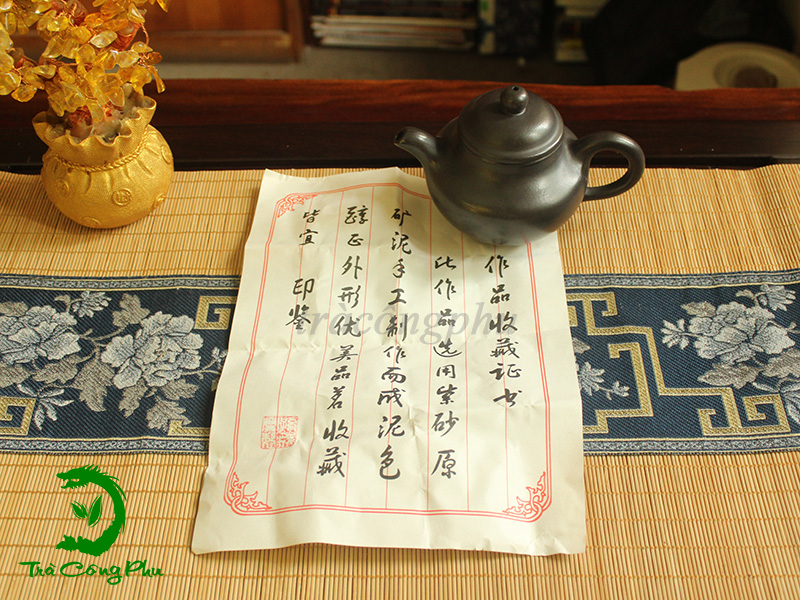 作品收藏证书
此作品选用紫砂原
矿泥手工制作而成泥色
醇正外形优美品茗收藏
皆宜 印鉴
tracongphu
Trà Công Phu